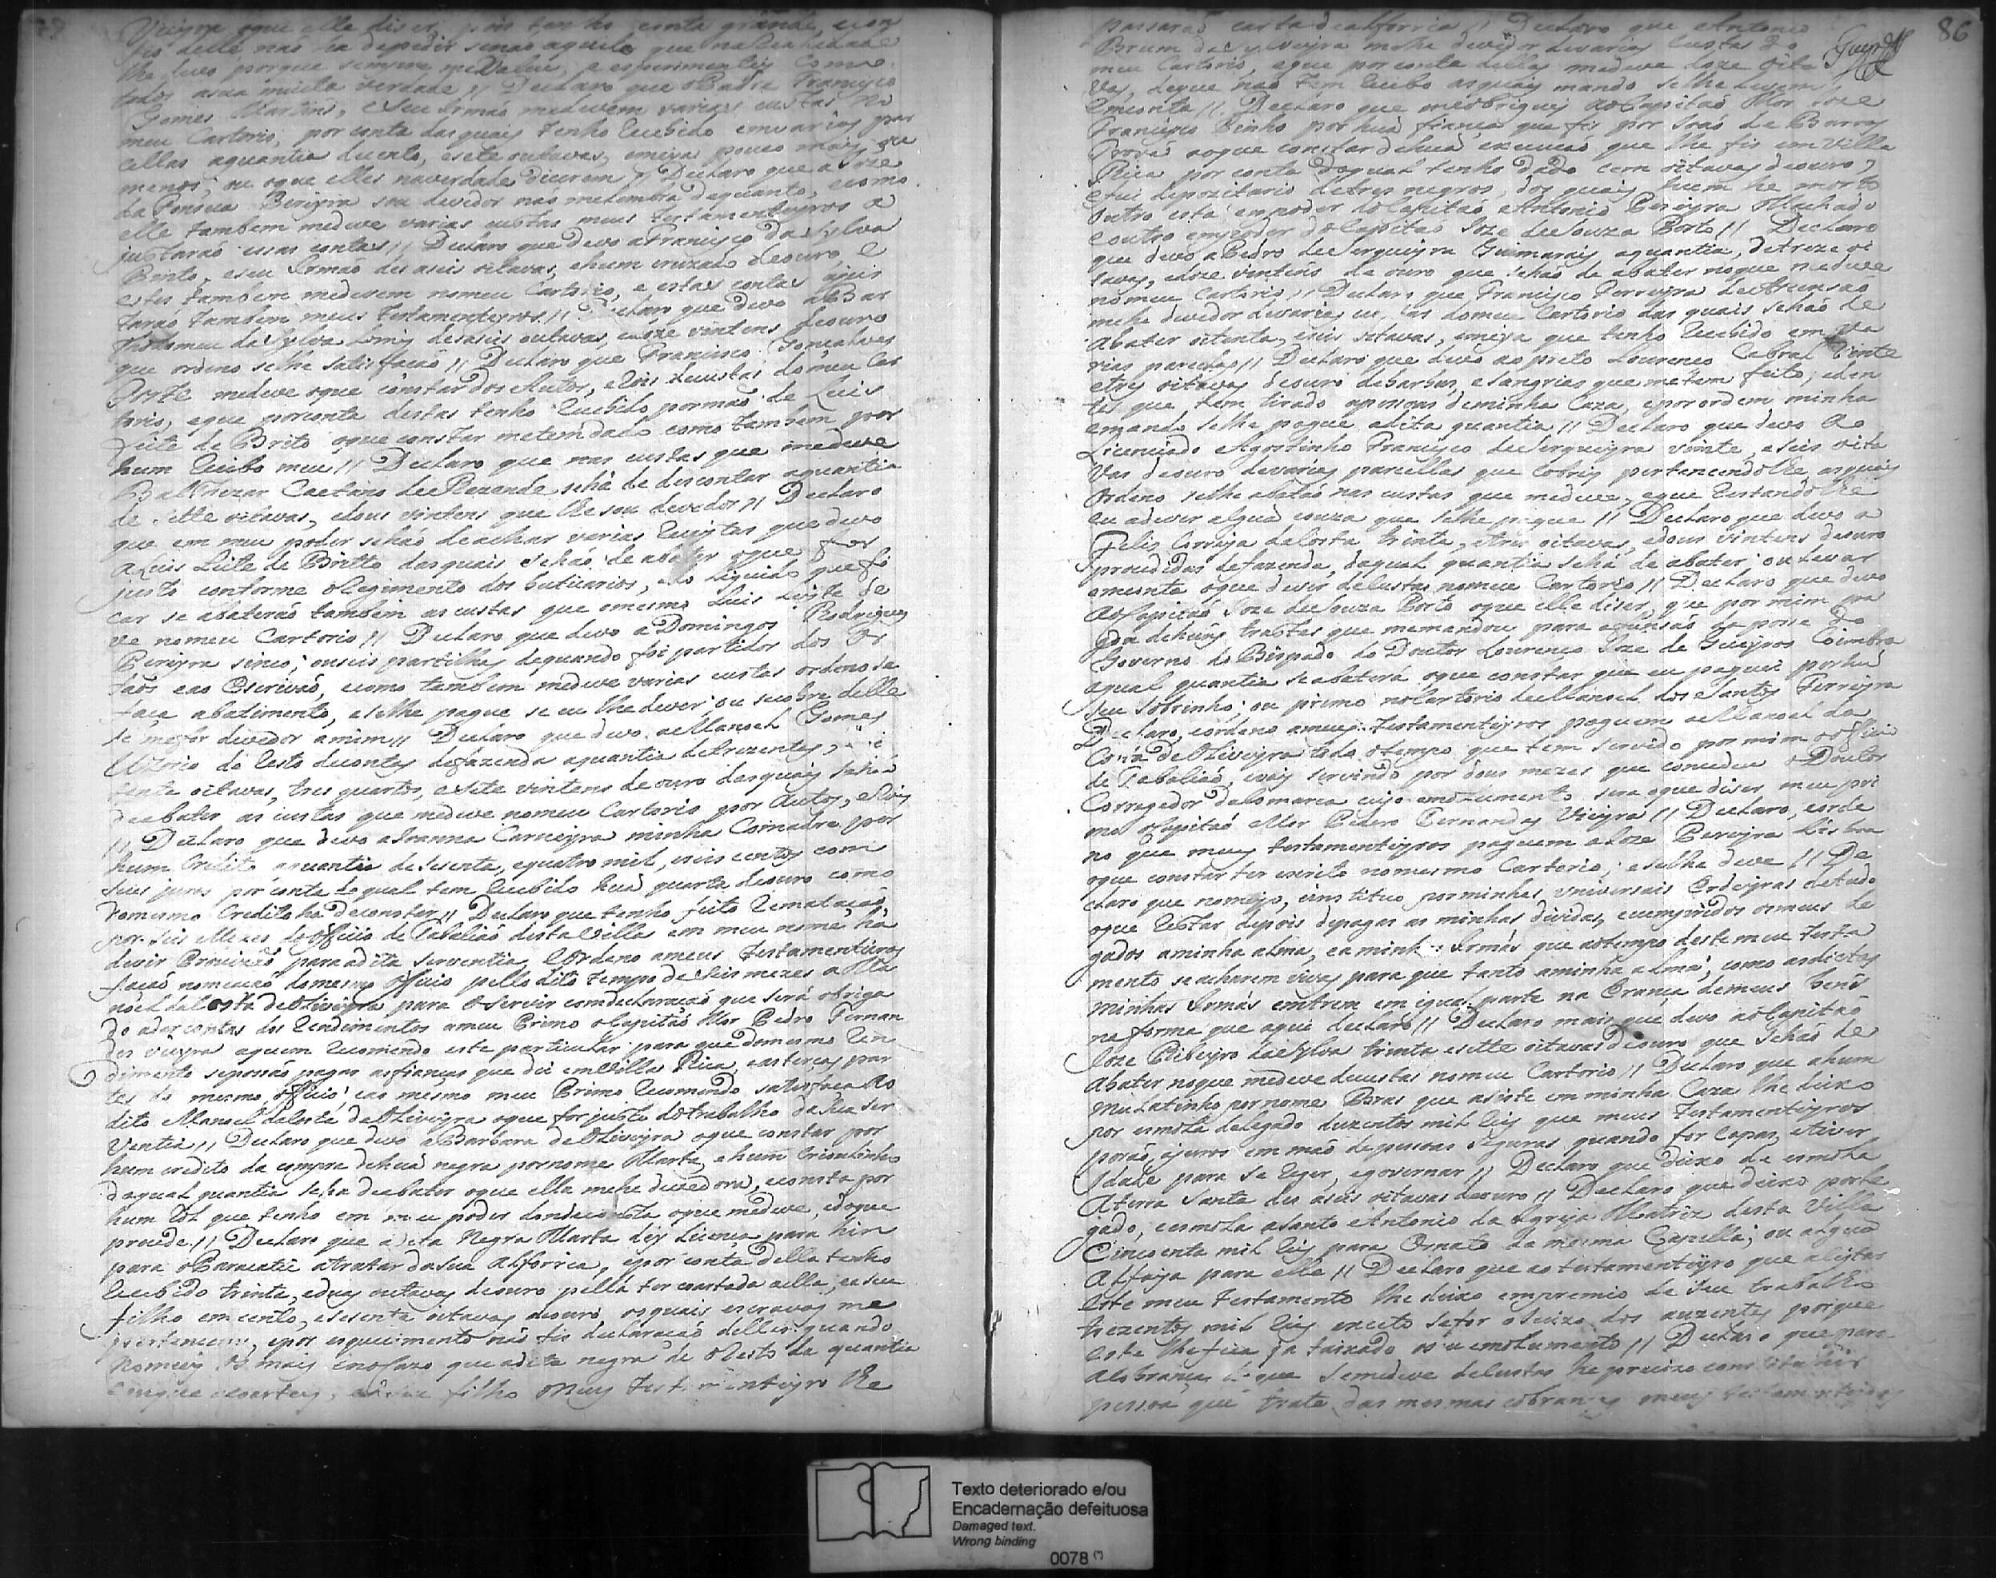 Vieyra oque elle diser pois tenho conta grande, e con
fio delle não ha de pedir senão aquilo que na Realidade
lhe devo porque sempre me valeu, e esperimentey como
todos a sua muita verdade // Declaro que o Padre Francisco
Gomes Martins, e seu Irmão me devem varias custas no
meu Cartorio, por conta das quais tenho Recebido em varias par
cellas a quantia de cento, e sete outavas, e meya pouco mais, ou
menos, ou oque elles na verdade diserem // Declaro que a Joze
da Fonseca Pereyra sou devedor não me lembra de quanto, e como
elle tambem me deve varias custas meus testamenteyros a
justarão essas contas // Declaro que devo a Francisco da Sylva
Brito, e seu Irmão des aseis oitavas, e hum cruzado de ouro e
estes tambem me devem no meu Cartorio, e estas contas ajus
tarão tambem meus testamenteyros // Declaro que devo a Bar
tholomeu da Sylva Lemos desaseis outavas, e doze vintens de ouro
que ordeno se lhe satisfação // Declaro que Francisco Gonçalves
Porte me deve oque constar dos Autos, e Rois de custas do meu Car
torio, e que por conta destas tenho Recebido por mão de Luis
Leite de Brito oque constar me tem dado como tambem por
hum Recibo meu // Declaro que nas custas que me deve
Balthezar Caetano de Rezende se ha de descontar a quantia
de sette oitavas, e dous vintens que lhe sou devedor // Declaro
que em meu poder se hão de achar varias Receytas que devo
a Luis Leite de Britto das quais se hão de abater oque for
justo conforme o Regimento dos buticarios, e do liquido que fi
car se abaterão tambem as custas que o mesmo Luis Leyte de
ve no meu Cartorio // Declaro que devo a Domingos Rodrigues
Pereyra sinco, ou seis partilhas de quando foi partidor dos Or
fãos e ao Escrivão, e como tambem me deve varias custas ordeno se
faça abatimento, e se lhe pague se eu lhe dever, ou se cobre delle
se me for devedor a mim // Declaro que devo a Manoel Gomes
Uzorio do Resto de contas de fazenda a quantia de trezentas, e
tente oitavas, tres quartos, e sete vintens de ouro das quais se hão
de abater as custas que me deve no meu Cartorio por Autos, e Rois
// Declaro que devo a Joanna Carneyra minha Comadre por
hum Credito a quantia de secenta, e quatro mil, e seis centos com
seus juros por conta do qual tem Recebido huã quarta de ouro como
do mesmo Credito ha de constar // Declaro que tenho feito Rematação
por seis Mezes do Officio de Tabalião desta Villa em meu nome ha
de vir Provizão para a dita serventia, e Ordeno a meus Testamenteiros
fação nomeação do mesmo Officio pello dito tempo de seis mezes a Ma
noel da Costa de Oliveyra para o servir com declaração que será obriga
do a dar contas dos Rendimentos a meu Primo o Capitão Mor Pedro Fernan
des Vieyra a quem Recomendo este particular para que do mesmo Ren
dimento se possão pagar as fianças que dei em Villa Rica, e as terças par
tes do mesmo Officio, e ao mesmo meu Primo Recomendo satisfaça ao
dito Manoel da Costa de Oliveyra oque for justo do trabalho da sua ser
ventia // Declaro que devo a Barbara de Oliveyra oque constar por
hum credito da compra de huã negra por nome Marta, e hum crioulinho
da qual quantia se ha de abater oque ella me he devedora, e consta por
hum Rol que tenho em meu poder donde consta oque me deve, e do que
procede // Declaro que a dita Negra Marta dey Licença para hir
para o Paracatú a tratar da sua Alforria, e por conta della tenho
Recebido trinta, e duas outavas de ouro pella ter coartada a ella, e a seu
filho em cento, e secenta oitavas de ouro, os quais escravos me
pertencem, e por esquecimento não fis declaração delles quando
nomeey os mais, e no cazo que a dita negra dê o Resto da quantia
em que a coartey, e a seu filho o meu testamenteyro lhe

86
passará carta de alforria // Declaro que Antonio
Brum da Sylveyra me he devedor de varias custas do
meu Cartorio, e que por conta dellas me deve doze oita
vas, de que não tem Recibo as quais mando se lhe levem
em conta // Declaro que me obriguey ao Capitão Mor Joze
Francisco Pinho por huã fiança que fis por João de Barros
Prova oque constar de huã execução que lhe fis em Villa
Rica por conta da qual tenho dado cem oitavas de ouro,
e fui depozitario de tres negros, dos quais hum he morto
outro está em poder do Capitão Antonio Pereyra Machado
e outro em poder do Capitão Joze de Souza Porto // Declaro
que devo a Pedro de Serqueyra Guimarais a quantia de treze oi
tavas, e doze vinteis de ouro que se hão de abater no que me deve
no meu Cartorio // Declaro que Francisco Ferreyra de Ascensão
me he devedor de varias custas do meu Cartorio das quais se hão de
abater oitenta, e seis oitavas, e meya que tenho Recebido em va
rias parcelas // Declaro que devo ao preto Lourenço Cabral vinte
e tres oitavas de ouro de barbas, e sangrias que me tem feito, e den
tes que tem tirado a pessoas de minha Caza, e por ordem minha
e mando se lhe pague a dita quantia // Declaro que devo ao
Licenciado Agostinho Francisco de Serqueyra vinte, e seis oita
vas de ouro de varias parcellas que cobrey pertencendolhe, as quais
Ordeno se lhe abatão nas custas que me deve, e que Restandolhe
eu a dever alguã couza que se lhe pague // Declaro que devo a
Feliz Correya da Costa trinta, e tres oitavas, e dous vintens de ouro
procedidas de fazenda, da qual quantia se ha de abater, ou levar
em conta oque dever de custas no meu Cartorio // Declaro que devo
ao Capitão Joze de Souza Porto oque elle diser, que por mim pa
gou de huns trastes que me mandou para a função da posse do
Governo do Bispado do Doutor Lourenço Joze de Queyros Coimbra
a qual quantia se abaterá oque constar que eu paguei por hũ
seu Sobrinho, ou primo no Cartorio de Manoel dos Santos Ferreyra
Declaro, e ordeno a meus testamenteyros paguem a Manoel da
Costa de Oliveyra todo o tempo que tem servido por mim o officio
de Tabalião, e vay servindo por dous mezes que concedeu o Doutor
Corregedor da Comarca cujo emolumento sera oque diser meu pri
mo o Capitão Mor Pedro Fernandes Vieyra // Declaro, e orde
no que meus testamenteyros paguem a Joze Pereyra Lisboa
oque constar ter escrito no mesmo Cartorio, e se lhe deve // De
claro que nomeyo, e instituo por minhas universais Erdeyras de tudo
oque Restar depois de pagas as minhas dividas, e cumpridos os meus le
gados a minha alma, e a minhas Irmãs que ao tempo deste meu testa
mento se acharem vivas, para que tanto a minha alma, como as dictas
minhas Irmãs entrem em igual parte na Erança de meus bens
na forma que aqui declaro // Declaro mais que devo ao Capitão
Joze Ribeyro da Sylva trinta e sette oitavas de ouro que se hão de
abater no que me deve de custas no meu Cartorio // Declaro que a hum
Mulatinho por nome Bras que asiste em minha Caza lhe deixo
por esmola de legado duzentos mil Reis que meus testamenteyros
porão, a juros em mão de pessoas seguras, quando for capas, e tiver
idade para se Reger, e governar // Declaro que deixo de esmola
a terra Santa des aseis oitavas de ouro // Declaro que deixo por le
gado, e esmola a Santo Antonio da Igreja Matriz desta Villa
Cincoenta mil Reis para Ornato da mesma Capella, ou alguã
alfaya para elle // Declaro que ao testamenteyro que aceitar
este meu testamento lhe deixo em premio de seu trabalho
trezentos mil Reis exceto se for o Juizo dos auzentes porque
este lhe fica ja taixado o seu emolumento // Declaro que para
a cobrança do que se me deve de custas he precizo constituhir
pessoa que trate das mesmas cobranças meus testamenteyros

Texto deteriorado e/ou
Encadernação defeituosa
Damaged text.
Wrong binding
0078 (*)